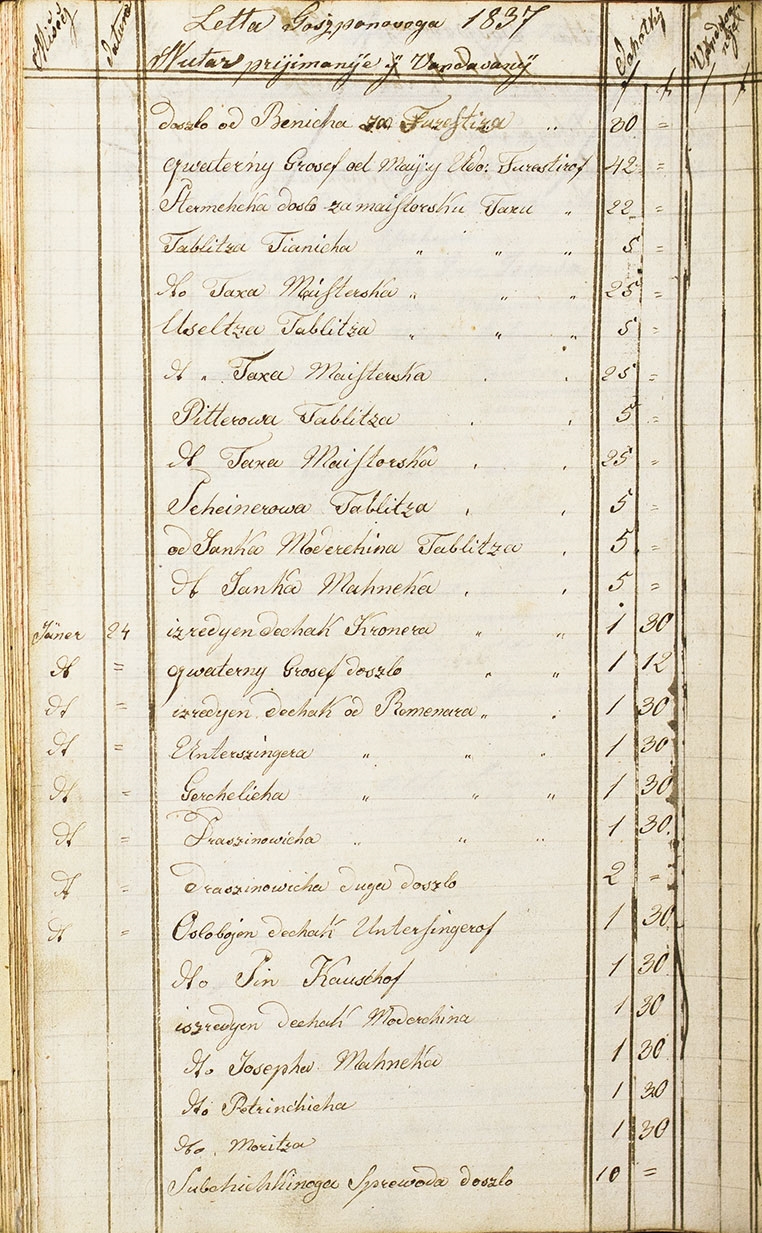 Letta Goszponovoga 1837
Mischecz Datum Nutar prijimanÿe ÿ Vandavanÿ Dohotki
doszlo od Benicha za Furestiza " 80 =
qwaterny Grosef od Maÿÿ Udo: Furestirof 42 =
Stermeheka doslo za maistorsku Taxu " 22 =
Tablitza Tianicha " " " 5 =
dto Taxa Maisterska " " " 25 =
Useltza Tablitza " " " 5 =
dt " Taxa Maisterska " " 25 =
Pitterowa Tablitza " " 5 =
dt Taxa Maistorska " " 25 =
Scheinerowa Tablitza " " 5 =
od Janka Moderchina Tablitza " 5 =
dt Janka Mahneka " " 5 =
Jäner 24 izredyen dechak Kronera " " 1 30
dt = qwaterny Grosef doszlo " " 1 12
dt = izredyen dechak od Romenara " " 1 30
dt = Unterszingera " " " 1 30
dt = Gerchelicha " " " 1 30
dt = Draszinowicha " " " 1 30
dt = Draszinowicha duga doszlo 2 =
dt = Oslobojen dechak Untersingerof 1 30
dto Sin Kauschof 1 30
iszredyen dechak Moderchina 1 30
dto Josepha Mahneka 1 30
dto Petrinchicha 1 30
dto Moritza 1 30
Sprewoda doszlo 10 =